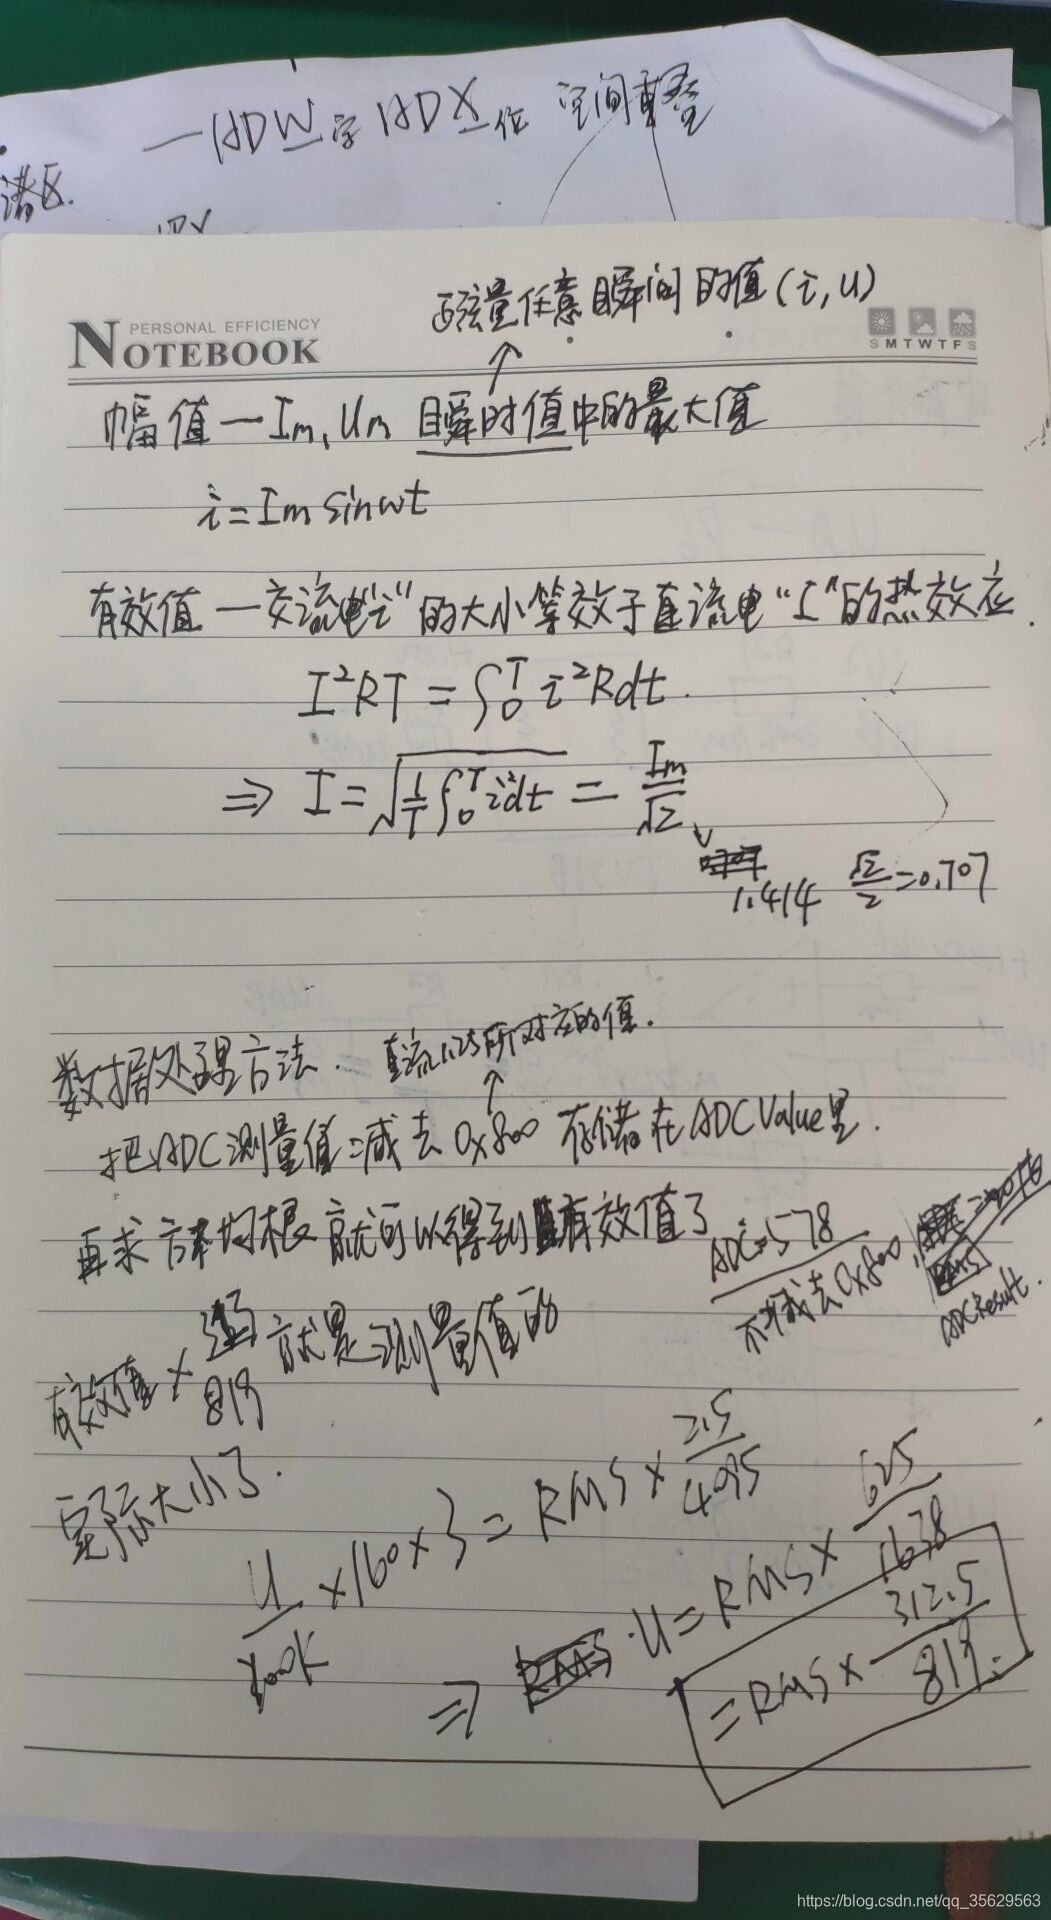 一ADW字 ADX位 空间重叠
诸区.
正弦量任意瞬间的值(i,u)
PERSONAL EFFICIENCY
NOTEBOOK
S M T W T F S
幅值一Im,Um 瞬时值中的最大值
i=Im sinwt
有效值 一交流电“i”的大小等效于直流电“I”的热效应.
I²RT = ∫₀ᵀ i²Rdt.
⇒ I=√(1/T ∫₀ᵀ i²dt) = Im/√2
1.414 √2/2=0.707
数据处理方法. 直流1.25所对应的值.
把ADC测量值减去0x800 存储在ADCValue里.
再求方均根就可以得到有效值了
ADC=578
不减去0x800,
ADCResult.
有效值×/819 就是测量值的
实际大小了.
U/×160×3=RMS×2.5/4095
⇒ U=RMS×625/1638
=RMS×312.5/819.
https://blog.csdn.net/qq_35629563